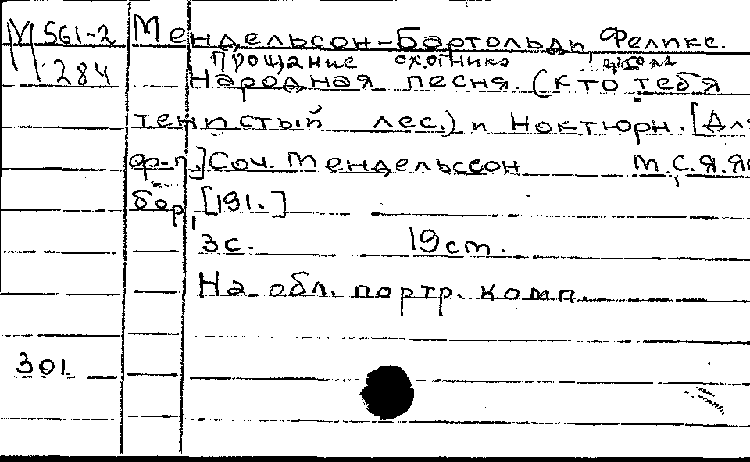 М 561-2 Мендельсон-Бартольди, Феликс.
284 Прощание охотника
Народная песня. (Кто тебя
тенистый лес.) и Ноктюрн. [Для
ф-п.] Соч. Мендельссон М.С.Я.Ям
бор, [191.]
3с. 19см.
На обл. портр. комп.
301